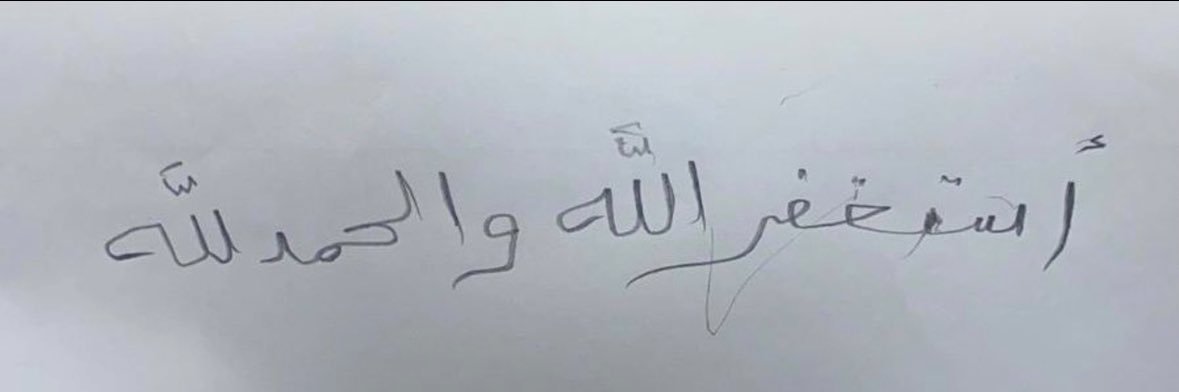 أستغفر اللَّه والحمد للَّه